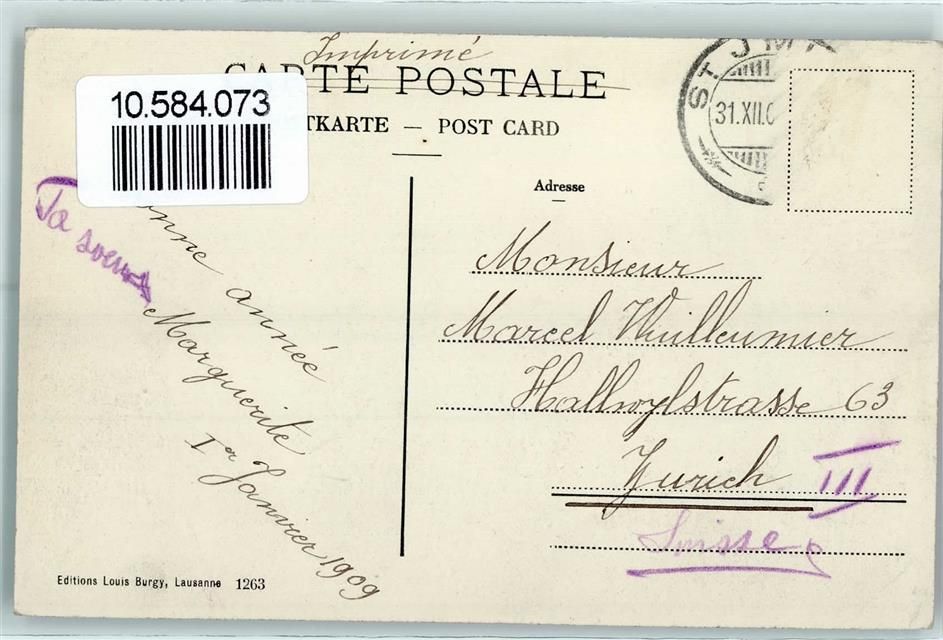 Imprimé
CARTE POSTALE
10.584.073
TKARTE — POST CARD
Adresse
ST. JMI
31.XII.0
onne année
Ta soeur
Marguerite
1er Janvier 1909
Monsieur
Marcel Wuilleumier
Hallwylstrasse 63
Zurich III
Suisse
Editions Louis Burgy, Lausanne 1263